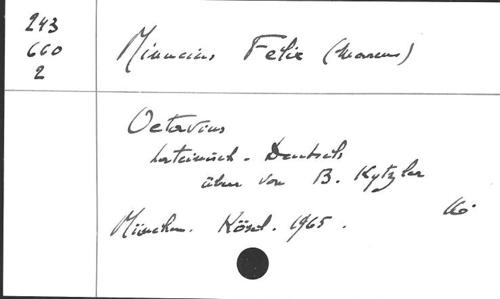 243
660
2
Minucius Felix (Marcus)
Octavius
Lateinisch - Deutsch
über von B. Kytzler
München. Kösel. 1965.